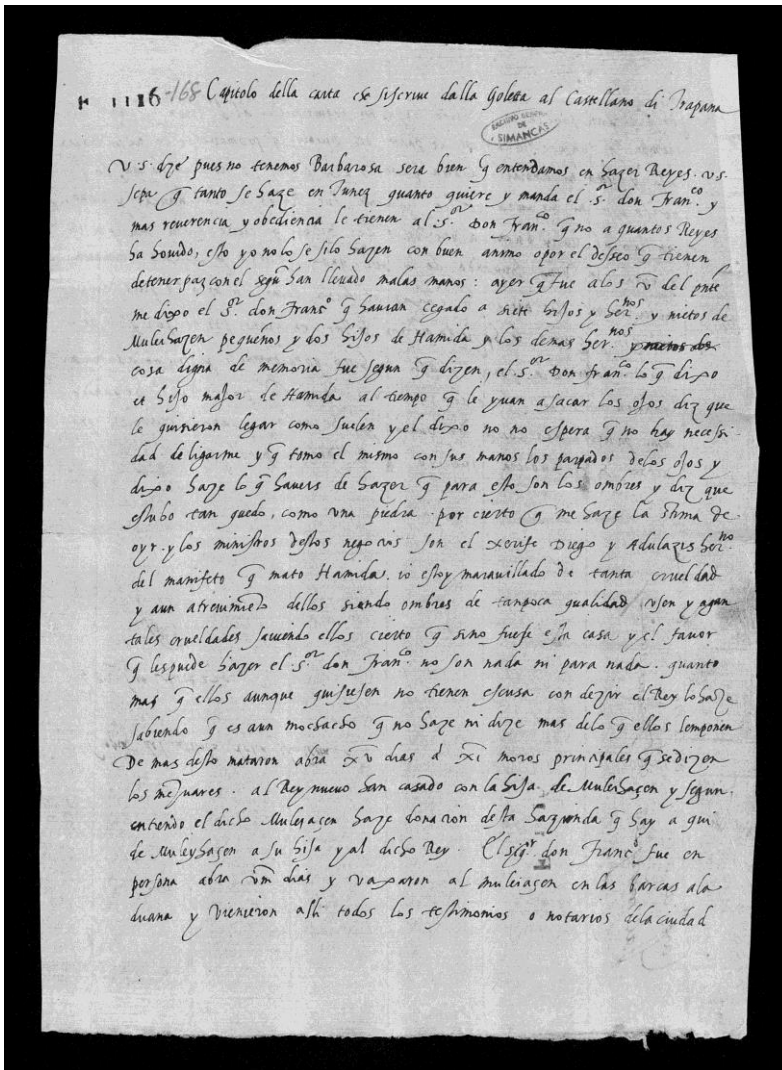 E 1116-168 Capitolo della carta che si scrive dalla Goletta al Castellano di Trapana
ARCHIVO GENERAL DE SIMANCAS
V. s. dize pues no tenemos Barbarosa sera bien q̄ entendamos en hazer Reyes. v. s.
sepa q̄ tanto se haze en Tunez quanto quiere y manda el s.or don Fran.co y
mas reverencia y obediencia le tienen al s.or Don Fran.co q̄ no a quantos Reyes
ha hovido, esto yo no lo se si lo hazen con buen animo o por el desseo q̄ tienen
de tener paz con el segū han llevado malas manos: ayer q̄ fue a los v del pnte
me dixo el s.or don Franc.o q̄ havian cegado a siete hijos y her.nos y nietos de
Muleihazen pequeños y dos hijos de Hamida y los demas her.nos y nietos de
cosa digna de memoria fue segun q̄ dizen, el s.or Don Fran.co lo q̄ dixo
el hijo major de Hamida al tiempo q̄ le yuan a sacar los ojos diz que
le quisieron legar como suelen y el dixo no no espera q̄ no hay necessi-
dad de ligarme y q̄ tomo el mismo con sus manos los parpados de los ojos y
dixo haze lo q̄ haveis de hazer q̄ para esto son los ombres y diz que
estubo tan quedo, como una piedra. por cierto q̄ me haze lastima de
oyr. y los ministros destos negocios son el xerife Diego y Adulazis her.no
del manifeto q̄ mato Hamida. io estoy maravillado de tanta crueldad
y aun atrevimiēto dellos siendo ombres de tan poca qualidad usen y agan
tales crueldades saviendo ellos cierto q̄ sino fuese esta casa y el favor
q̄ les puede hazer el s.or don Fran.co no son nada ni para nada. quanto
mas q̄ ellos aunque quisiesen no tienen escusa con dezir el Rey lo haze
sabiendo q̄ es aun mochacho q̄ no haze ni dize mas de lo q̄ ellos le mponen
De mas desto mataron abra xv dias a xi moros principales q̄ se dizen
los . al Rey nuevo han casado con la hija de Muleihaçen y segun
entiendo el dicho Muleiaçen haze donacion desta hazienda q̄ hay a qui
de Muleyhaçen a su hija y al dicho Rey. El sig.or don Franc.o fue en
persona abra viii dias y vaxaron al muleiaçen en las barcas a la
duana y vienieron alli todos los testimonios o notarios de la ciudad